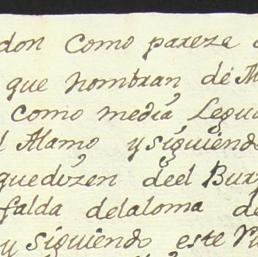 don Como pareze
que nombran de M
como media Legu
l Alamo y siguiendo
que dizen de el Bur
falda de la loma de
y siguiendo este